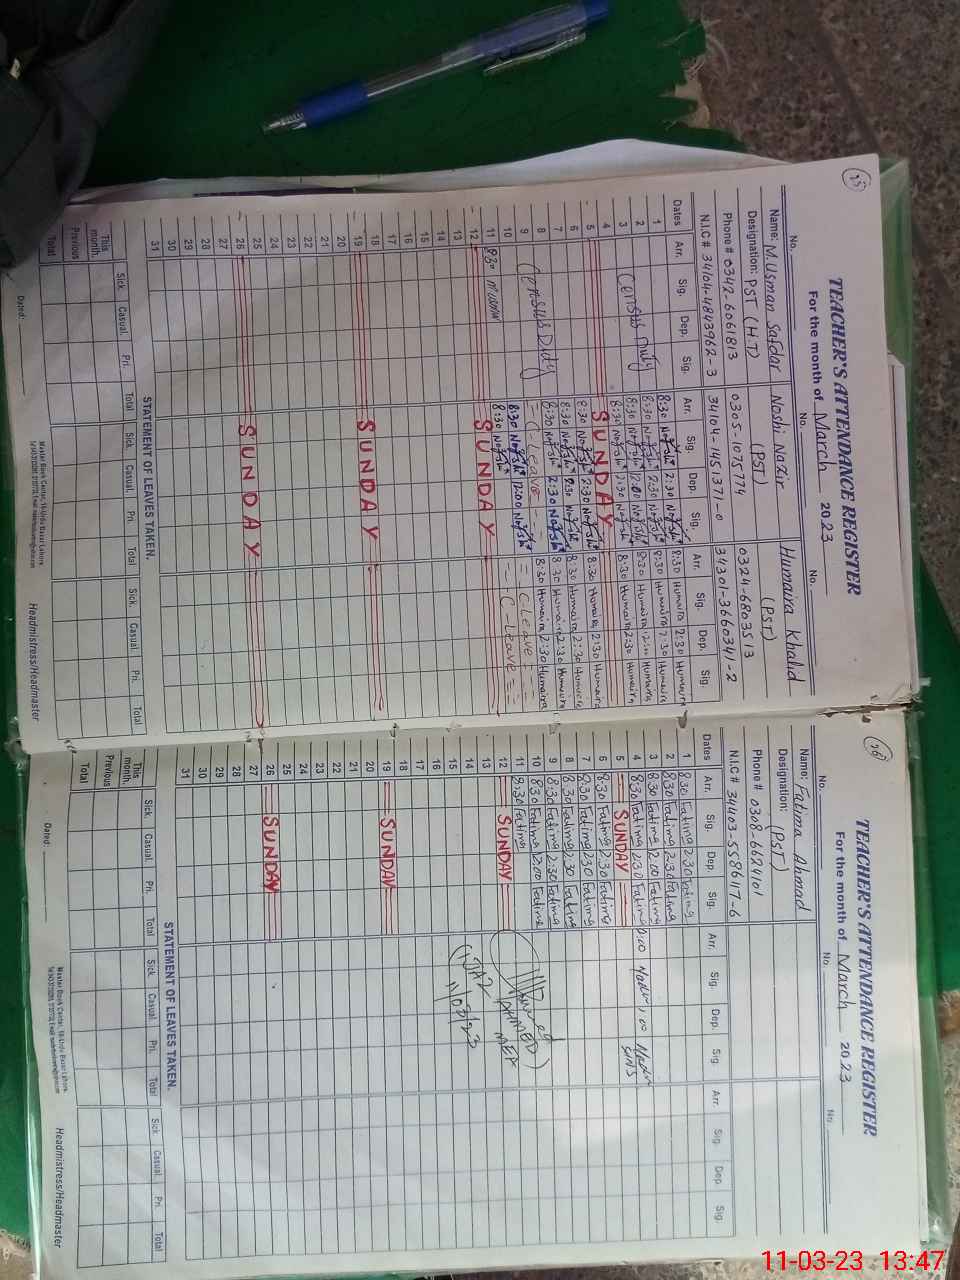 25
TEACHER'S ATTENDANCE REGISTER
For the month of March 2023
No. No. No.
Name: M.Usman Safdar Noshi Nazir Humaira Khalid
Designation: PST (H.T) (PST) (PST)
Phone # 0342-6061813 0305-1075774 0324-6803513
N.I.C # 34104-4843962-3 34104-1451371-0 34301-3660341-2
Dates Arr. Sig. Dep. Sig. Arr. Sig. Dep. Sig. Arr. Sig. Dep. Sig.
1 8:30 2:30 8:30 Humaira 2:30 Humaira
2 Census Duty 8:30 2:30 8:30 Humaira 2:30 Humaira
3 8:30 12:00 8:30 Humaira 12:00 Humaira
4 8:30 2:30 8:30 Humaira 2:30 Humaira
5 SUNDAY
6 8:30 2:30 8:30 Humaira 2:30 Humaira
7 8:30 2:30 8:30 Humaira 2:30 Humaira
8 Census Duty 8:30 2:30 8:30 Humaira 2:30 Humaira
9 = C-Leave = 8:30 Humaira 2:30 Humaira
10 8:30 12:00 = C-Leave =
11 8:30 8:30 C-Leave =
12 SUNDAY
13
14
15
16
17
18
19 SUNDAY
20
21
22
23
24
25
26 SUNDAY
27
28
29
30
31
STATEMENT OF LEAVES TAKEN.
Sick. Casual. Pri. Total Sick. Casual. Pri. Total Sick. Casual. Pri. Total
This month.
Previous
Total
Dated:
Master Book Center, 18-Urdu Bazar Lahore.
Headmistress/Headmaster
26
TEACHER'S ATTENDANCE REGISTER
For the month of March 2023
No. No. No.
Name: Fatima Ahmad
Designation: (PST)
Phone # 0308-6624101
N.I.C # 34403-5586117-6
Dates Arr. Sig. Dep. Sig. Arr. Sig. Dep. Sig. Arr. Sig. Dep. Sig.
1 8:30 Fatima 2:30 Fatima
2 8:30 Fatima 2:30 Fatima
3 8:30 Fatima 12:00 Fatima
4 8:30 Fatima 2:30 Fatima
5 SUNDAY
6 8:30 Fatima 2:30 Fatima
7 8:30 Fatima 2:30 Fatima
8 8:30 Fatima 2:30 Fatima
9 8:30 Fatima 2:30 Fatima
10 8:30 Fatima 12:00 Fatima
11 8:30 Fatima
12 SUNDAY
AHMED)
11/03/23
13
14
15
16
17
18
19 SUNDAY
20
21
22
23
24
25
26 SUNDAY
27
28
29
30
31
STATEMENT OF LEAVES TAKEN.
Sick. Casual. Pri. Total Sick. Casual. Pri. Total Sick Casual. Pri. Total
This month.
Previous
Total
Dated:
Master Book Center, 18-Urdu Bazar Lahore.
Headmistress/Headmaster
11-03-23 13:47